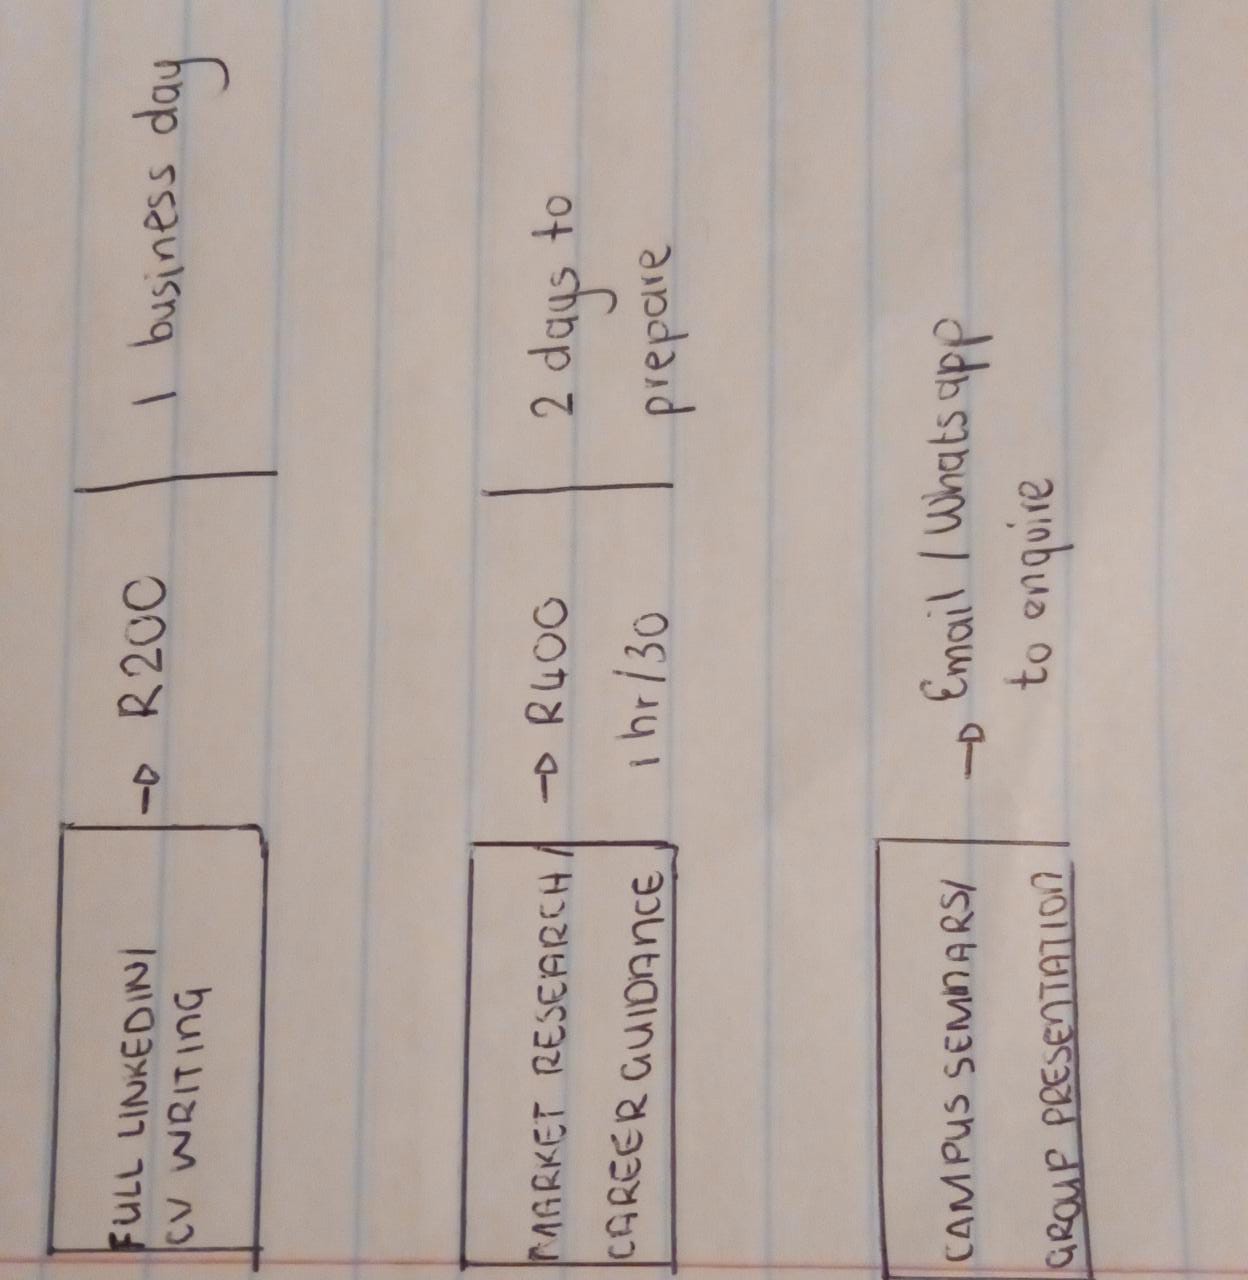 FULL LINKEDIN/
CV WRITING
→ R200
1 business day
MARKET RESEARCH/
CAREER GUIDANCE
→ R400
1 hr/30
2 days to
prepare
CAMPUS SEMINARS/
GROUP PRESENTATION
→ Email / Whatsapp
to enquire